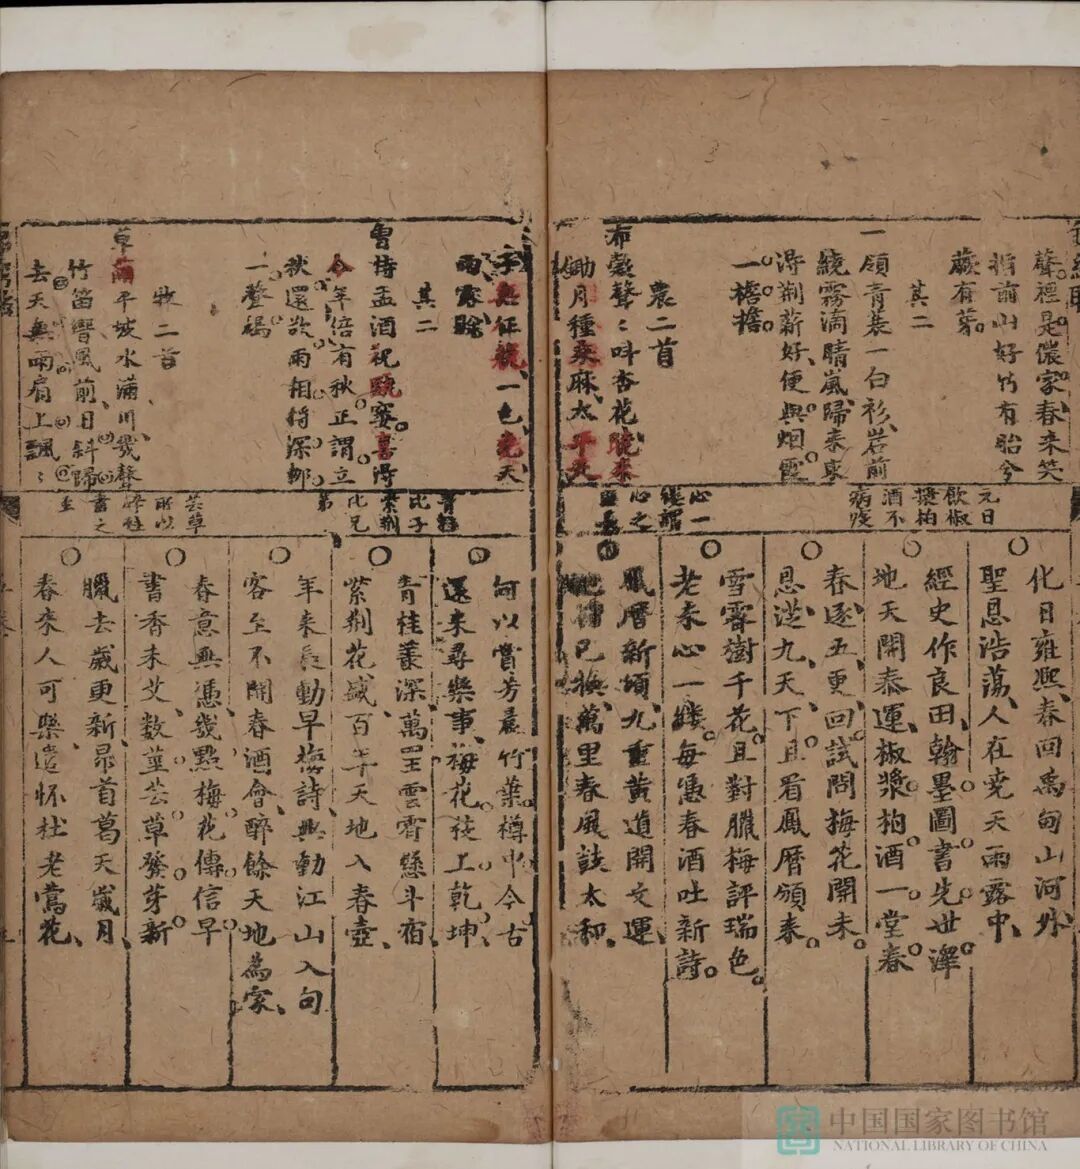 聲裡是儂家春來笑
指前山好竹有胎今
蕨有芽
其二
一領青蓑一白衫岩前
繞霧滴晴嵐歸來裏
淂荆薪好便與烟霞
一擔擔
農二首
布穀聲〻呌杏花曉來
鋤月種桑麻太平天
子無征號一色堯天
雨露賒
其二
曾持盃酒祝甌窭喜淂
今年倍有秋正謂立
秋還欲雨相將深鄉
一犂褐
牧二首
草蒲平坡水滿川幾聲
竹笛響風前日斜歸
去天無雨肩上飄〻
元日
飲椒
漿柏
酒不
病疫
心一
縷謂
心之
青桂
比子
紫荆
比兄
弟
芸草
所以
辟蛀
書之
化日雍熙春回禹甸山河外
聖恩浩蕩人在堯天雨露中
經史作良田翰墨圖書先世澤
地天開泰運椒漿柏酒一堂春
春逐五更回試問梅花開未
恩從九天下且看鳳曆頒來
雪霽樹千花且對臘梅評瑞色
老來心一縷每凴春酒吐新詩
鳳曆新頒九重黄道開文運
已換萬里春風鼓太和
何以賞芳晨竹葉樽中今古
還來尋樂事梅花花上乾坤
青桂叢深萬里雲霄懸斗宿
紫荆花盛百年天地入春壺
年來長動早梅詩興動江山入句
客至不開春酒會醉餘天地為家
春意無凴幾點梅花傳信早
書香未艾数莖芸草發芽新
臘去歲更新昂首葛天歲月
春來人可樂遣懷杜老鶯花
中国国家图书馆
NATIONAL LIBRARY OF CHINA